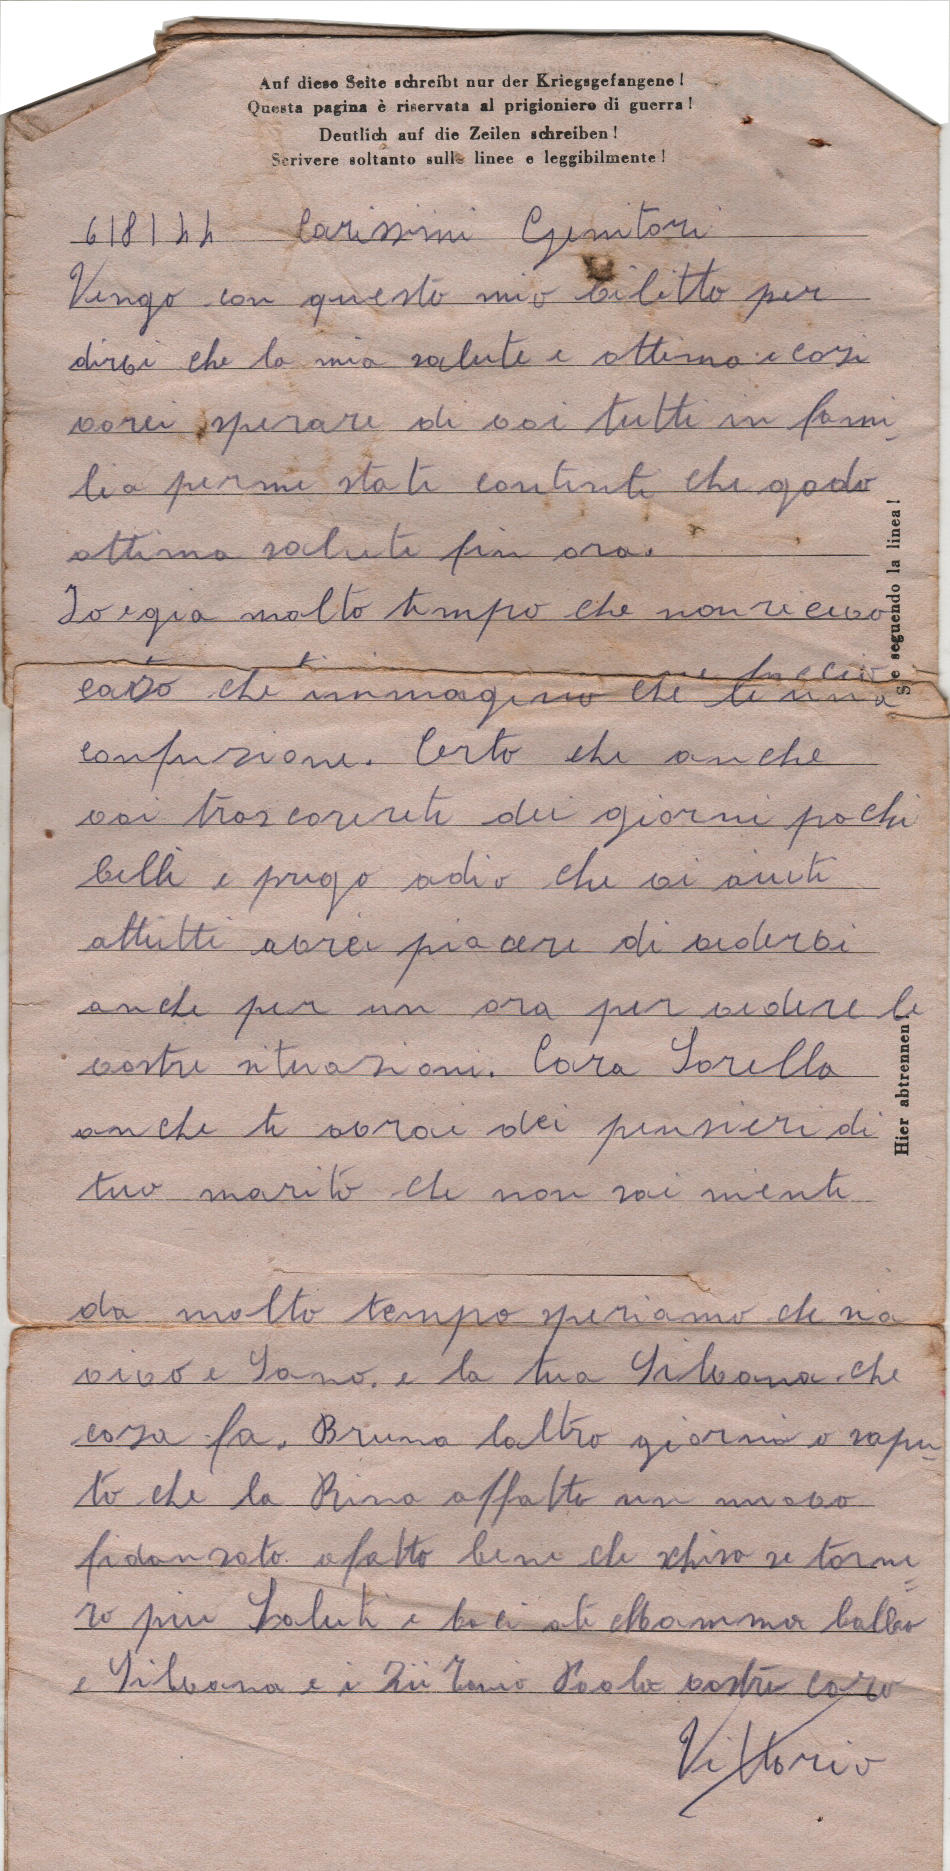 Auf diese Seite schreibt nur der Kriegsgefangene!
Questa pagina è riservata al prigioniero di guerra!
Deutlich auf die Zeilen schreiben!
Scrivere soltanto sulle linee e leggibilmente!
6/8/44 Carissimi Genitori
Vengo con questo mio bilitto per
dirvi che la mia salute e ottima e cosi
vorei sperare di voi tutti in fami-
lia per me state contenti che godo
ottima salute fin ora.
Io e gia molto tempo che non ricevo
che immagino che le una
confusione. Certo che anche
voi trascorerete dei giorni pochi
belli e prego adio che vi aiuti
attutti avrei piacere di vedervi
anche per un ora per vedere le
vostre situazioni. Cara Sorella
anche te avrai dei pensieri di
tuo marito che non sai niente
da molto tempo speriamo che sia
vivo e Sano. e la tua Silvana che
cosa fa. Bruna laltro giorno o sapu-
to che la Rina affatto un nuovo
fidanzato. afatto bene che se torne=
ro piu Saluti e baci ate Mamma babbo
e Silvana e i Zii Paola vostro caro
Vittorio
e seguendo la linea!
Hier abtrennen!